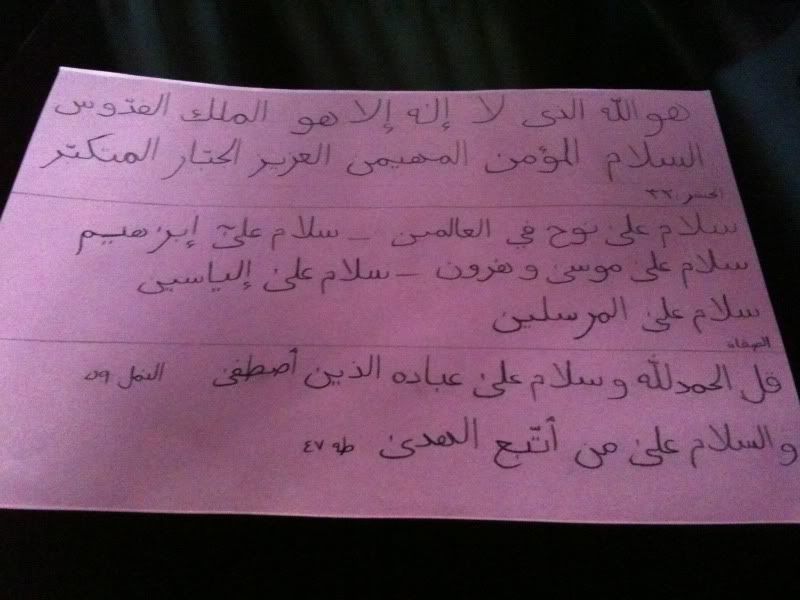 هو الله الذى لا إله إلا هو الملك القدوس
السلام المؤمن المهيمن العزيز الجبار المتكبر
الحشر ٢٣
سلام على نوح في العالمين – سلام على إبرٰهيم
سلام على موسى وهرون – سلام على إلياسين
سلام على المرسلين
الصفات
قل الحمد لله وسلام على عباده الذين أصطفى النمل ٥٩
والسلام على من أتّبع الهدى طه ٤٧